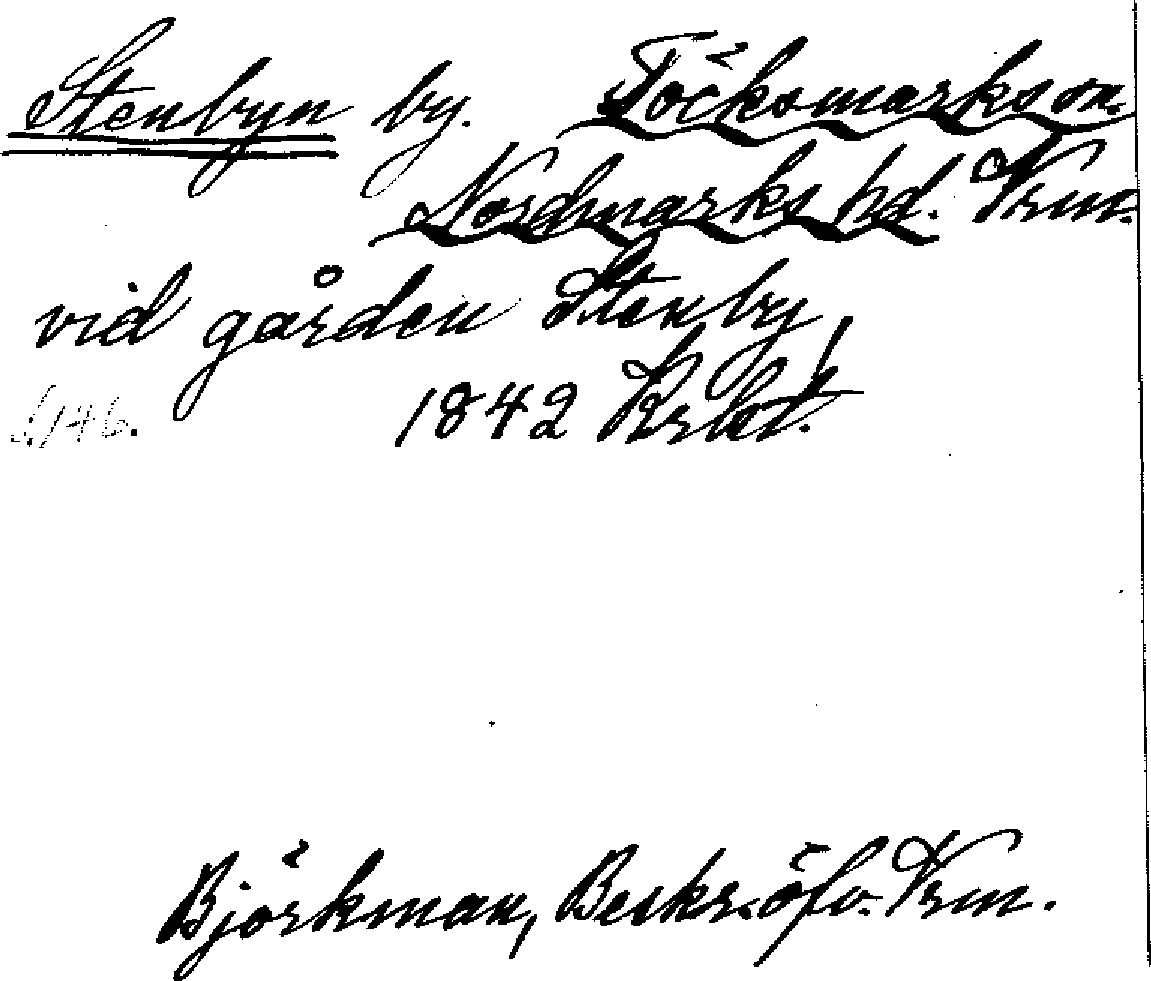 Stenbyn by. Töcksmarks sn.
Nordmarks hd. Vrm.
vid gården Stenby
S. 146. 1842 Krbt!
Björkman, Beskr. öfv. Vrm.